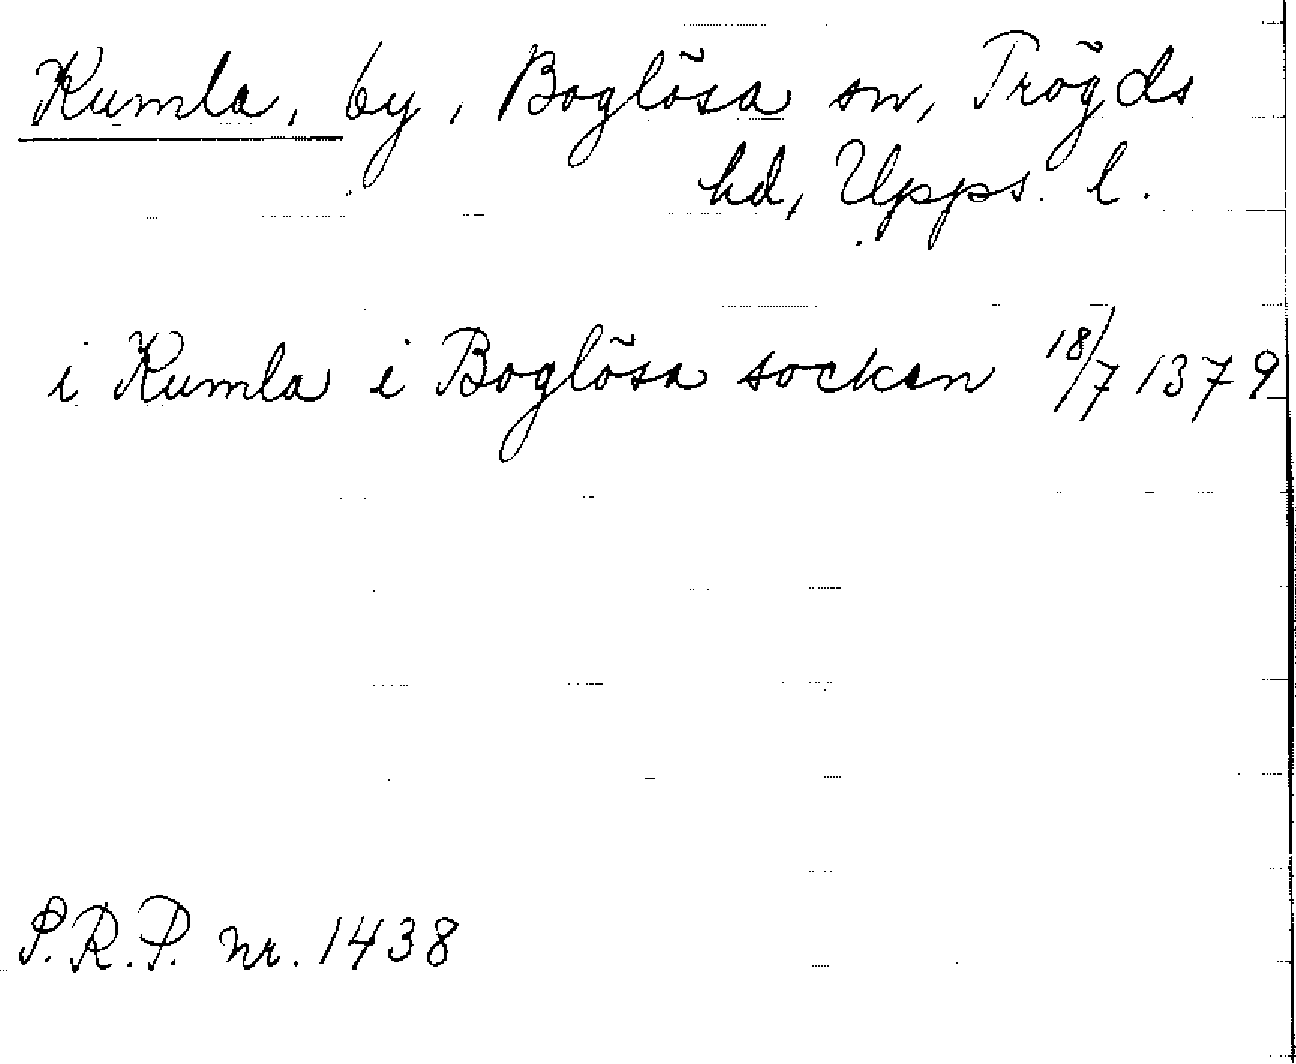 Kumla, by, Boglösa sn, Trögds
hd, Upps. l.
i Kumla i Boglösa socken 18/7 1379
S.R.P. nr. 1438